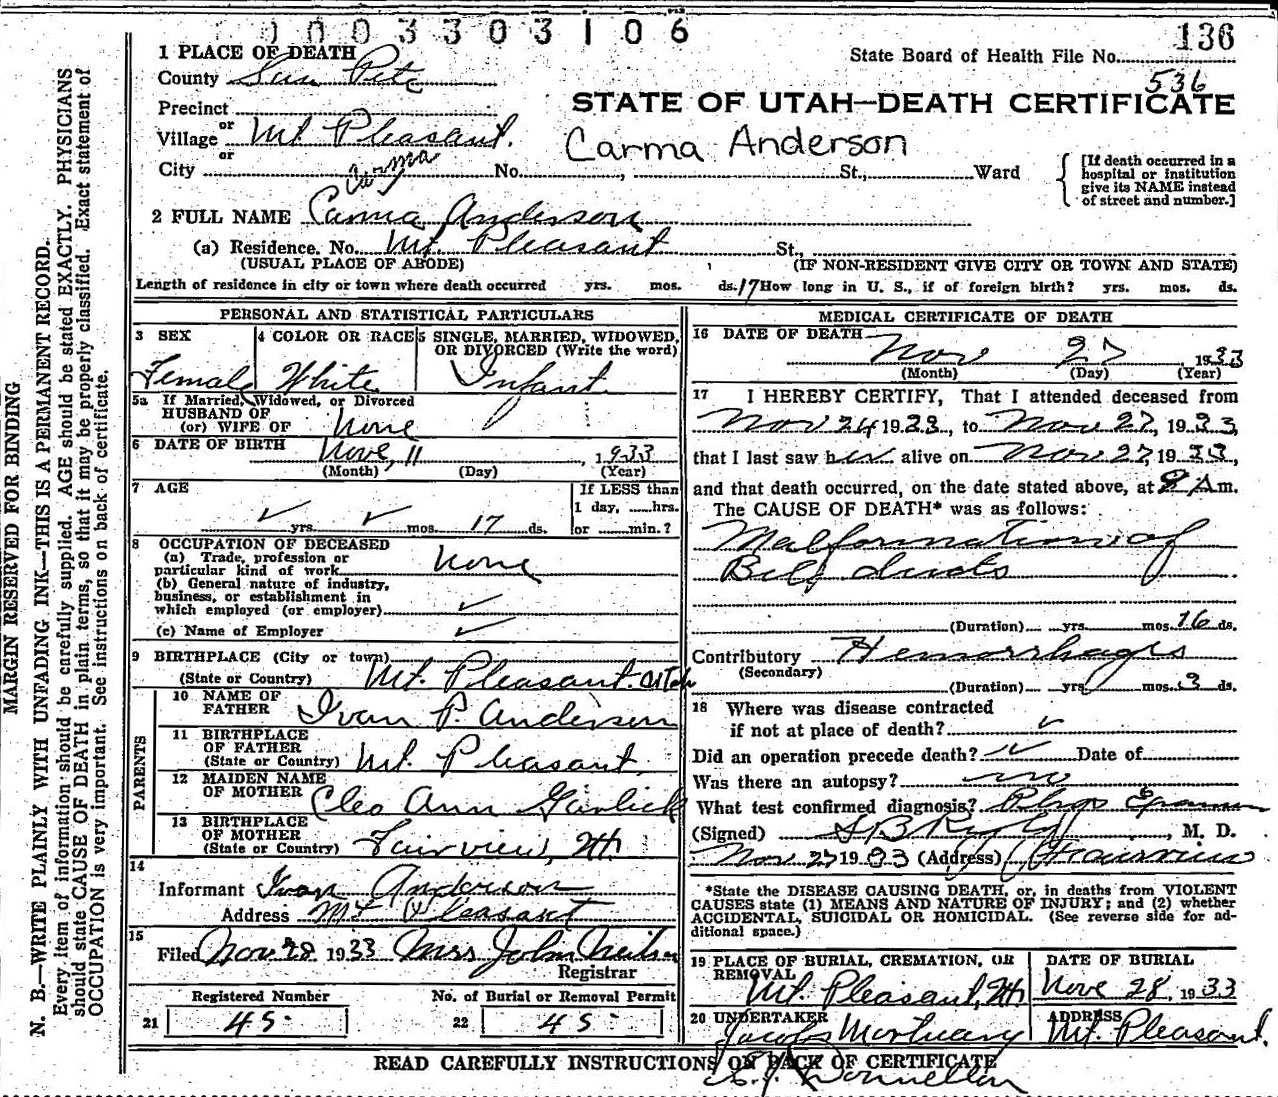 0003303106
136
State Board of Health File No.
536
STATE OF UTAH—DEATH CERTIFICATE
Carma Anderson
1 PLACE OF DEATH
County San Pete
Precinct
or
Village Mt. Pleasant.
or
City No. , St., Ward
[If death occurred in a
hospital or institution
give its NAME instead
of street and number.]
Carma
2 FULL NAME Carma Anderson
(a) Residence. No. Mt. Pleasant St.,
(USUAL PLACE OF ABODE) (IF NON-RESIDENT GIVE CITY OR TOWN AND STATE)
Length of residence in city or town where death occurred yrs. mos. ds. 17 How long in U. S., if of foreign birth? yrs. mos. ds.
PERSONAL AND STATISTICAL PARTICULARS
3 SEX
Female
4 COLOR OR RACE
White
5 SINGLE, MARRIED, WIDOWED,
OR DIVORCED (Write the word)
Infant
5a If Married, Widowed, or Divorced
HUSBAND OF
(or) WIFE OF None
6 DATE OF BIRTH Nove, 11, 1933
(Month) (Day) (Year)
7 AGE
✓ yrs. ✓ mos. 17 ds.
If LESS than
1 day, hrs.
or min.?
8 OCCUPATION OF DECEASED
(a) Trade, profession or
particular kind of work None
(b) General nature of industry,
business, or establishment in
which employed (or employer) ✓
(c) Name of Employer ✓
9 BIRTHPLACE (City or town)
(State or Country) Mt. Pleasant. Utah
PARENTS
10 NAME OF
FATHER Ivan P. Anderson
11 BIRTHPLACE
OF FATHER
(State or Country) Mt. Pleasant.
12 MAIDEN NAME
OF MOTHER Cleo Ann Garlick
13 BIRTHPLACE
OF MOTHER
(State or Country) Fairview, Ut.
14
Informant Ivan Anderson
Address Mt Pleasant
15
Filed Nov. 28 1933 Mrs John Neilson
Registrar
Registered Number
21 45
No. of Burial or Removal Permit
22 45
MEDICAL CERTIFICATE OF DEATH
16 DATE OF DEATH
Nov 27 1933
(Month) (Day) (Year)
17 I HEREBY CERTIFY, That I attended deceased from
Nov 24 1933, to Nov 27, 1933,
that I last saw her alive on Nov 27, 1933,
and that death occurred, on the date stated above, at 8 A m.
The CAUSE OF DEATH* was as follows:
Malformation of
Bile ducts
(Duration) yrs. mos. 16 ds.
Contributory Hemorrhages
(Secondary)
(Duration) yrs. mos. 3 ds.
18 Where was disease contracted
if not at place of death? ✓
Did an operation precede death? Date of
Was there an autopsy? no
What test confirmed diagnosis? Phys
(Signed) , M. D.
Nov. 27 1933 (Address) Fairview
*State the DISEASE CAUSING DEATH, or, in deaths from VIOLENT
CAUSES state (1) MEANS AND NATURE OF INJURY; and (2) whether
ACCIDENTAL, SUICIDAL OR HOMICIDAL. (See reverse side for ad-
ditional space.)
19 PLACE OF BURIAL, CREMATION, OR
REMOVAL
Mt. Pleasant, Ut
DATE OF BURIAL
Nove 28, 1933
20 UNDERTAKER
Jacobs Mortuary
ADDRESS
Mt. Pleasant.
READ CAREFULLY INSTRUCTIONS ON BACK OF CERTIFICATE
MARGIN RESERVED FOR BINDING
N. B.—WRITE PLAINLY WITH UNFADING INK—THIS IS A PERMANENT RECORD.
Every item of information should be carefully supplied. AGE should be stated EXACTLY. PHYSICIANS
should state CAUSE OF DEATH in plain terms, so that it may be properly classified. Exact statement of
OCCUPATION is very important. See instructions on back of certificate.